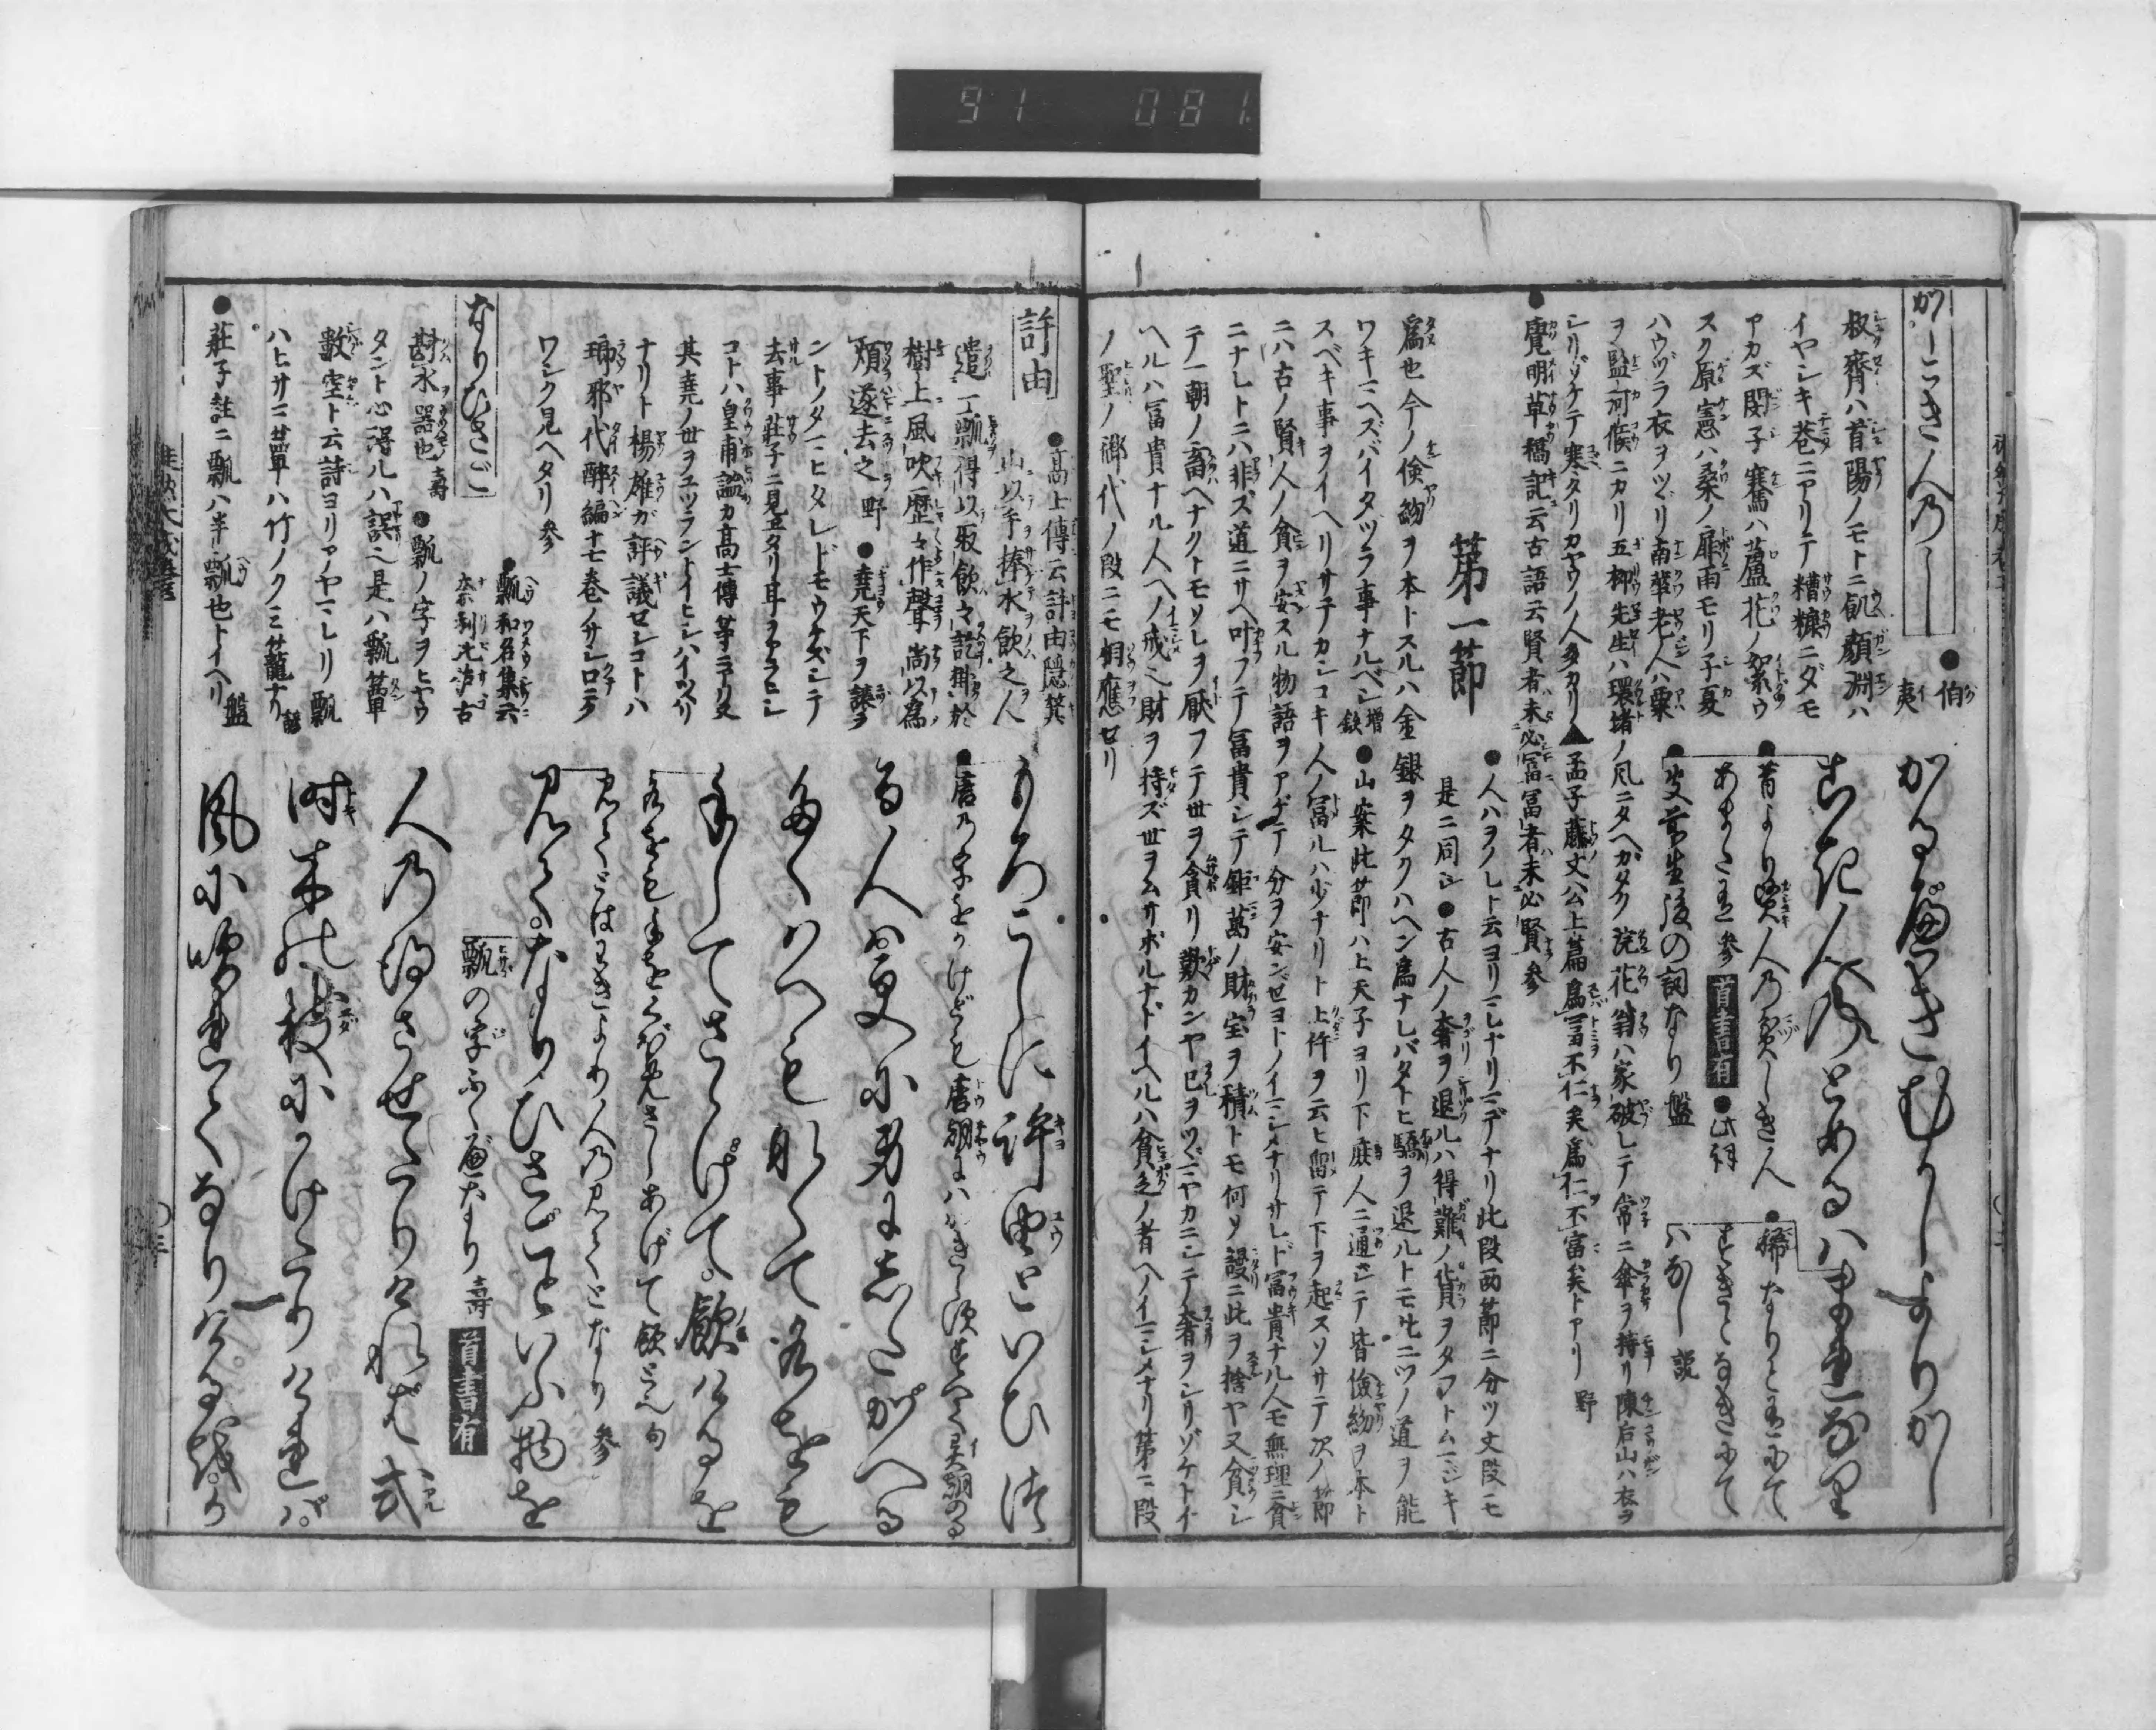 91 081
かしこき人のー
●伯夷
叔齊ハ首陽ノモトニ飢顔淵ハ
イヤシキ巷ニアリテ糟糠ニダモ
アカズ閔子騫ハ蘆花ノ絮ウ
スク原憲ハ桑ノ扉雨モリ子夏
ハウヅラ衣ヲツヾリ南華老人ハ粟
ヲ監河候ニカリ五柳先生ハ環堵ノ風ニタヘガタク浣花翁ハ家破レテ常ニ傘ヲ持リ陳后山ハ衣ヲ
シリゾケテ寒タリカヤウノ人多カリ▲孟子藤文公上篇為富不仁矣為仁不富矣トアリ 野
●覺明草稿記云古語云賢者未必冨冨者未必賢 参
かるべきむかしよりかし
こき人のとめるハまれなり
●昔より賢人の貧しきハ
あまた有 参 首書有 ●此詞
●稀なりと有にて
すきとなきにて
ハなし 説
●生前生後の詞なり 盤
第一節
●人ハヲノレト云ヨリコレナリマデナリ此段両節ニ分ツ文段モ
是ニ同シ●古人ノ奢ヲ退ルハ得難ノ貨ヲタフトムマジキ
為也今ノ倹約ヲ本トスルハ金銀ヲタクハヘン為ナレバタトヒ驕ヲ退ルトモ此二ツノ道ヲ能
ワキマヘズバイタヅラ事ナルベシ 増鉄 ●山案此節ハ上天子ヨリ下庶人ニ通シテ皆倹約ヲ本ト
スベキ事ヲイヘリサテカシコキ人ノ冨ルハ少ナリト上件ヲ云ヒ留テ下ヲ起スソサテ次ノ節
ニハ古ノ賢人ノ貧ヲ安スル物語ヲアゲテ分ヲ安ンゼヨトノイマシメナリサレド冨貴ナル人モ無理ニ貧
ニナレトニハ非ズ道ニサヘ叶フテ冨貴シテ鉅萬ノ財宝ヲ積トモ何ソ謾ニ此ヲ捨ヤ又貧シ
テ一朝ノ畜ヘナクトモソレヲ厭フテ世ヲ貪リ歎カンヤ已ヲツヾマヤカニシテ奢ヲシリゾケトイ
ヘルハ冨貴ナル人ヘノ戒也財ヲ持ズ世ヲムサボルナトイヘルハ貧乏ノ者ヘノイマシメナリ第二段
ノ聖ノ御代ノ段ニモ相應セリ
許由
●高士傳云許由隠箕
山以手捧水飲之人
遺一瓢得以取飲々訖掛於
樹上風吹歴々作聲尚以為
煩遂去之 野 ●堯天下ヲ譲ラ
ントノタマヒタレドモウケズシテ
去事荘子ニ見エタリ耳ヲアラヒシ
コトハ皇甫謐カ高士傳等ニアリ又
其堯ノ世ヲユヅラントイヒシハイツハリ
ナリト楊雄ガ評議セシコトハ
瑯邪代醉編十七巻ノサシロニテ
ワシク見ヘタリ 参
なりひさご
●瓢和名集云
奈利比佐古
斟水器也 壽 ●瓢ノ字ヲヒヤウ
タント心得ルハ誤也是ハ瓢箪
數空ト云詩ヨリアヤマレリ瓢
ハヒサゴ箪ハ竹ノクミ籠ナリ 諺
●莊子註ニ瓢ハ半瓢也トイヘリ 盤
もろこしに許由といひつ
●唐の字をかけども唐朝にハかきらす
る人ハ更に身にしたがへる
たくハへもなくて水をも
手してさゝげて飲けるを
水をも手を 飲と也 句
見てとはわきより人の見てとなり 参
見てなりひさごといふ物を
瓢の字ふくべなり 壽 首書有
人の得させたりけれど或
時木の枝にかけたりけれバ
風に吹れてなりけるを